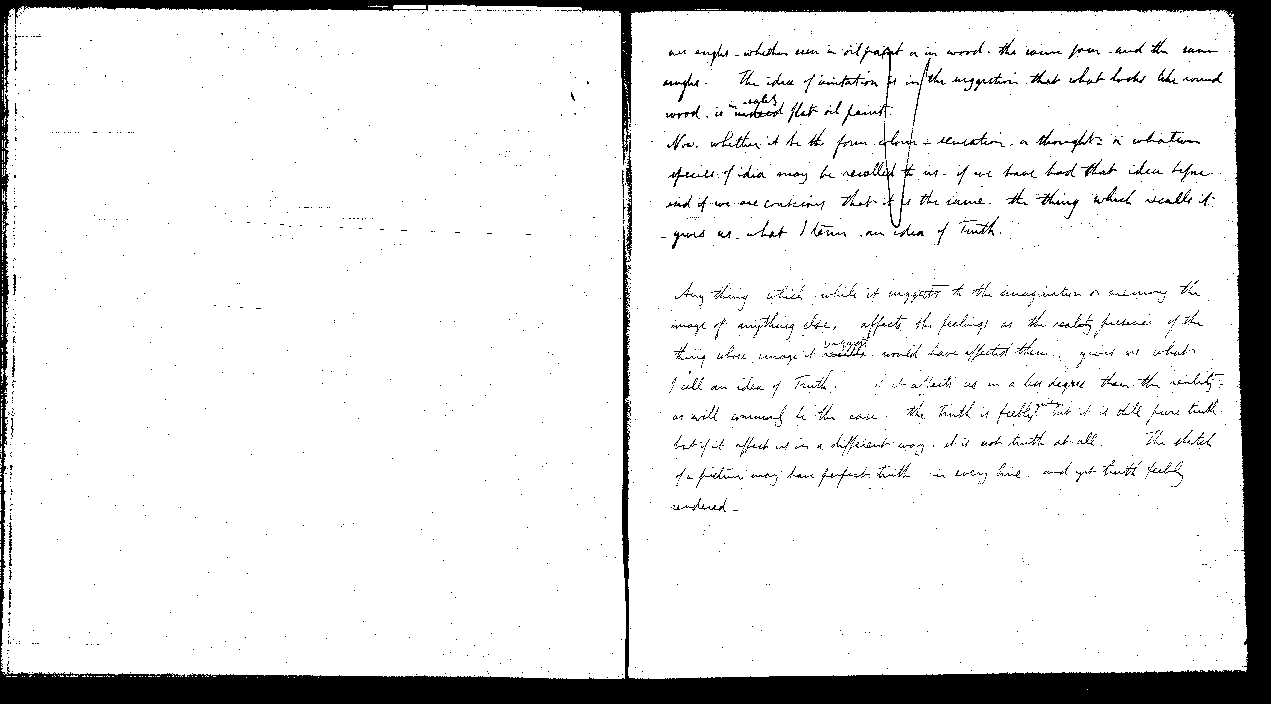 are angles - whether seen in oil paint or in wood. the same form and the same
angles. The idea of imitation is in the suggestion that what looks like round
wood. is really flat oil paint.
Now. whether it be the form colour - sensation. or thought - or whatever
species of idea may be recalled to us. if we have had that idea before
and if we are conscious that it is the same. the thing which recalls it
- gives us. what I term. an idea of Truth.
Any thing which while it suggests to the imagination or memory the
image of anything else, affects the feelings as the reality presence of the
suggests
thing whose image it would have affected them. gives us what
I call an idea of Truth. if it affects us in a less degree than the reality
as will commonly be the case. the Truth is feeble but it is still pure truth
but if it affect us in a different way. it is not truth at all. The sketch
of a picture may have perfect truth in every line. and yet truth feebly
rendered -